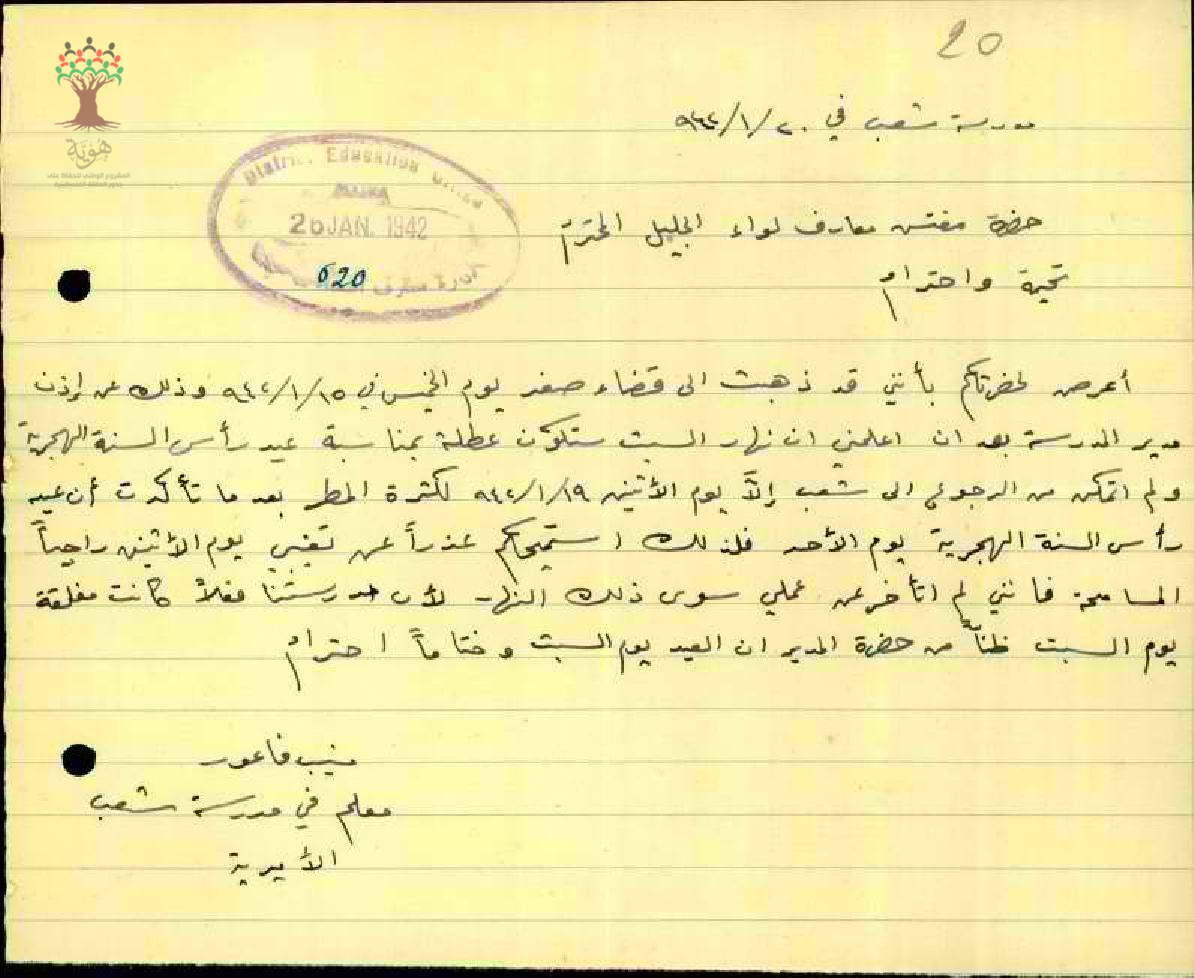 20
هوية
مدرسة شعب في ٢٠/١/٩٤٢
District Education Office
26 JAN. 1942
620
حضرة مفتش معارف لواء الجليل المحترم
تحية واحترام
أعرض لحضرتكم بأنني قد ذهبت الى قضاء صفد يوم الخميس في ١٥/١/٩٤٢ وذلك عن إذن
مدير المدرسة بعد ان اعلمني ان نهار السبت ستكون عطلة بمناسبة عيد رأس السنة الهجرية
ولم اتمكن من الرجوع الى شعب إلاّ يوم الأثنين ١٩/١/٩٤٢ لكثرة المطر بعد ما تأكدت أن عيد
رأس السنة الهجرية يوم الأحد فلذلك استميحكم عذراً عن تغيبي يوم الأثنين راجياً
المسامحة فانني لم اتأخر عن عملي سوى ذلك النهار لأن مدرستنا فعلاً كانت مغلقة
يوم السبت ظناً من حضرة المدير ان العيد يوم السبت وختاماً احترام
منيب فاعور
معلم في مدرسة شعب
الأميرية